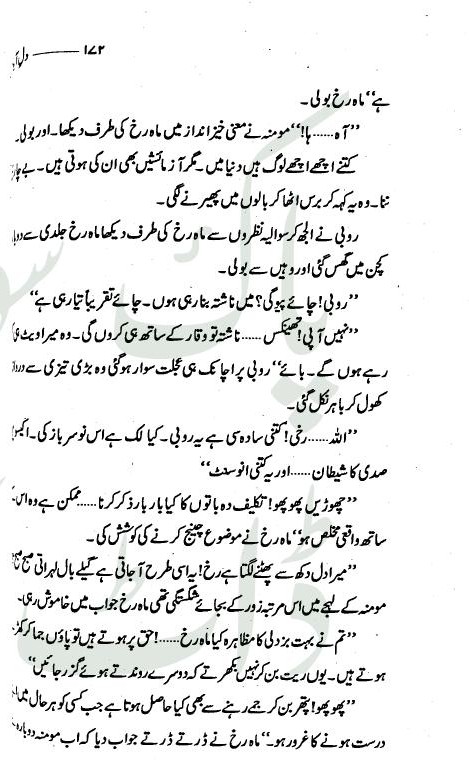 ۱۷۲ ——— دل
ہے‘‘ ماہ رخ بولی۔
’’آہ......ہا!‘‘ مومنہ نے معنی خیز انداز میں ماہ رخ کی طرف دیکھا۔ اور بولی۔
کتنے اچھے اچھے لوگ ہیں دنیا میں۔ مگر آزمائشیں بھی ان کی ہوتی ہیں۔ بے
ننا۔ وہ یہ کہہ کر برس اٹھا کر بالوں میں پھیرنے لگی۔
روبی نے الجھ کر سوالیہ نظروں سے ماہ رخ کی طرف دیکھا ماہ رخ جلدی سے
کچن میں گھس گئی اور وہیں سے بولی۔
’’روبی! چائے پیو گی؟ میں ناشتہ بنا رہی ہوں۔ چائے تقریباً تیار ہی ہے‘‘
’’نہیں آپی! تھینکس ...... ناشتہ تو وقار کے ساتھ ہی کروں گی۔ وہ میرا ویٹ
رہے ہوں گے۔ بائے‘‘ روبی پر اچانک ہی عجلت سوار ہو گئی وہ بڑی تیزی سے
کھول کر باہر نکل گئی۔
’’اللہ ...... رخی! کتنی سادہ سی ہے یہ روبی۔ کیا لک ہے اس نوسر باز کی۔
صدی کا شیطان ...... اور یہ کتنی انوسنٹ‘‘
’’چھوڑیں پھوپھو! تکلیف دہ باتوں کا کیا بار بار ذکر کرنا ...... ممکن ہے وہ
ساتھ واقعی مخلص ہو‘‘ ماہ رخ نے موضوع چینج کرنے کی کوشش کی۔
’’میرا دل دکھ سے پھٹنے لگتا ہے رخ! یہ اسی طرح آ جاتی ہے گیلے بال لہراتی صبح صبح
مومنہ کے لہجے میں اس مرتبہ زور کے بجائے شکستگی تھی ماہ رخ جواب میں خاموش رہی۔
’’تم نے بہت بزدلی کا مظاہرہ کیا ماہ رخ ......! حق پر ہوتے ہیں تو پاؤں جما کر
ہوتے ہیں۔ یوں ریت بن کر نہیں بکھرتے کہ دوسرے روندتے ہوئے گزر جائیں‘‘
’’پھوپھو! پتھر بن کر جمے رہنے سے بھی کیا حاصل ہوتا ہے جب کسی کو ہر حال میں
درست ہونے کا غرور ہو۔‘‘ ماہ رخ نے ڈرتے ڈرتے جواب دیا کہ اب مومنہ دوبارہ
پاک